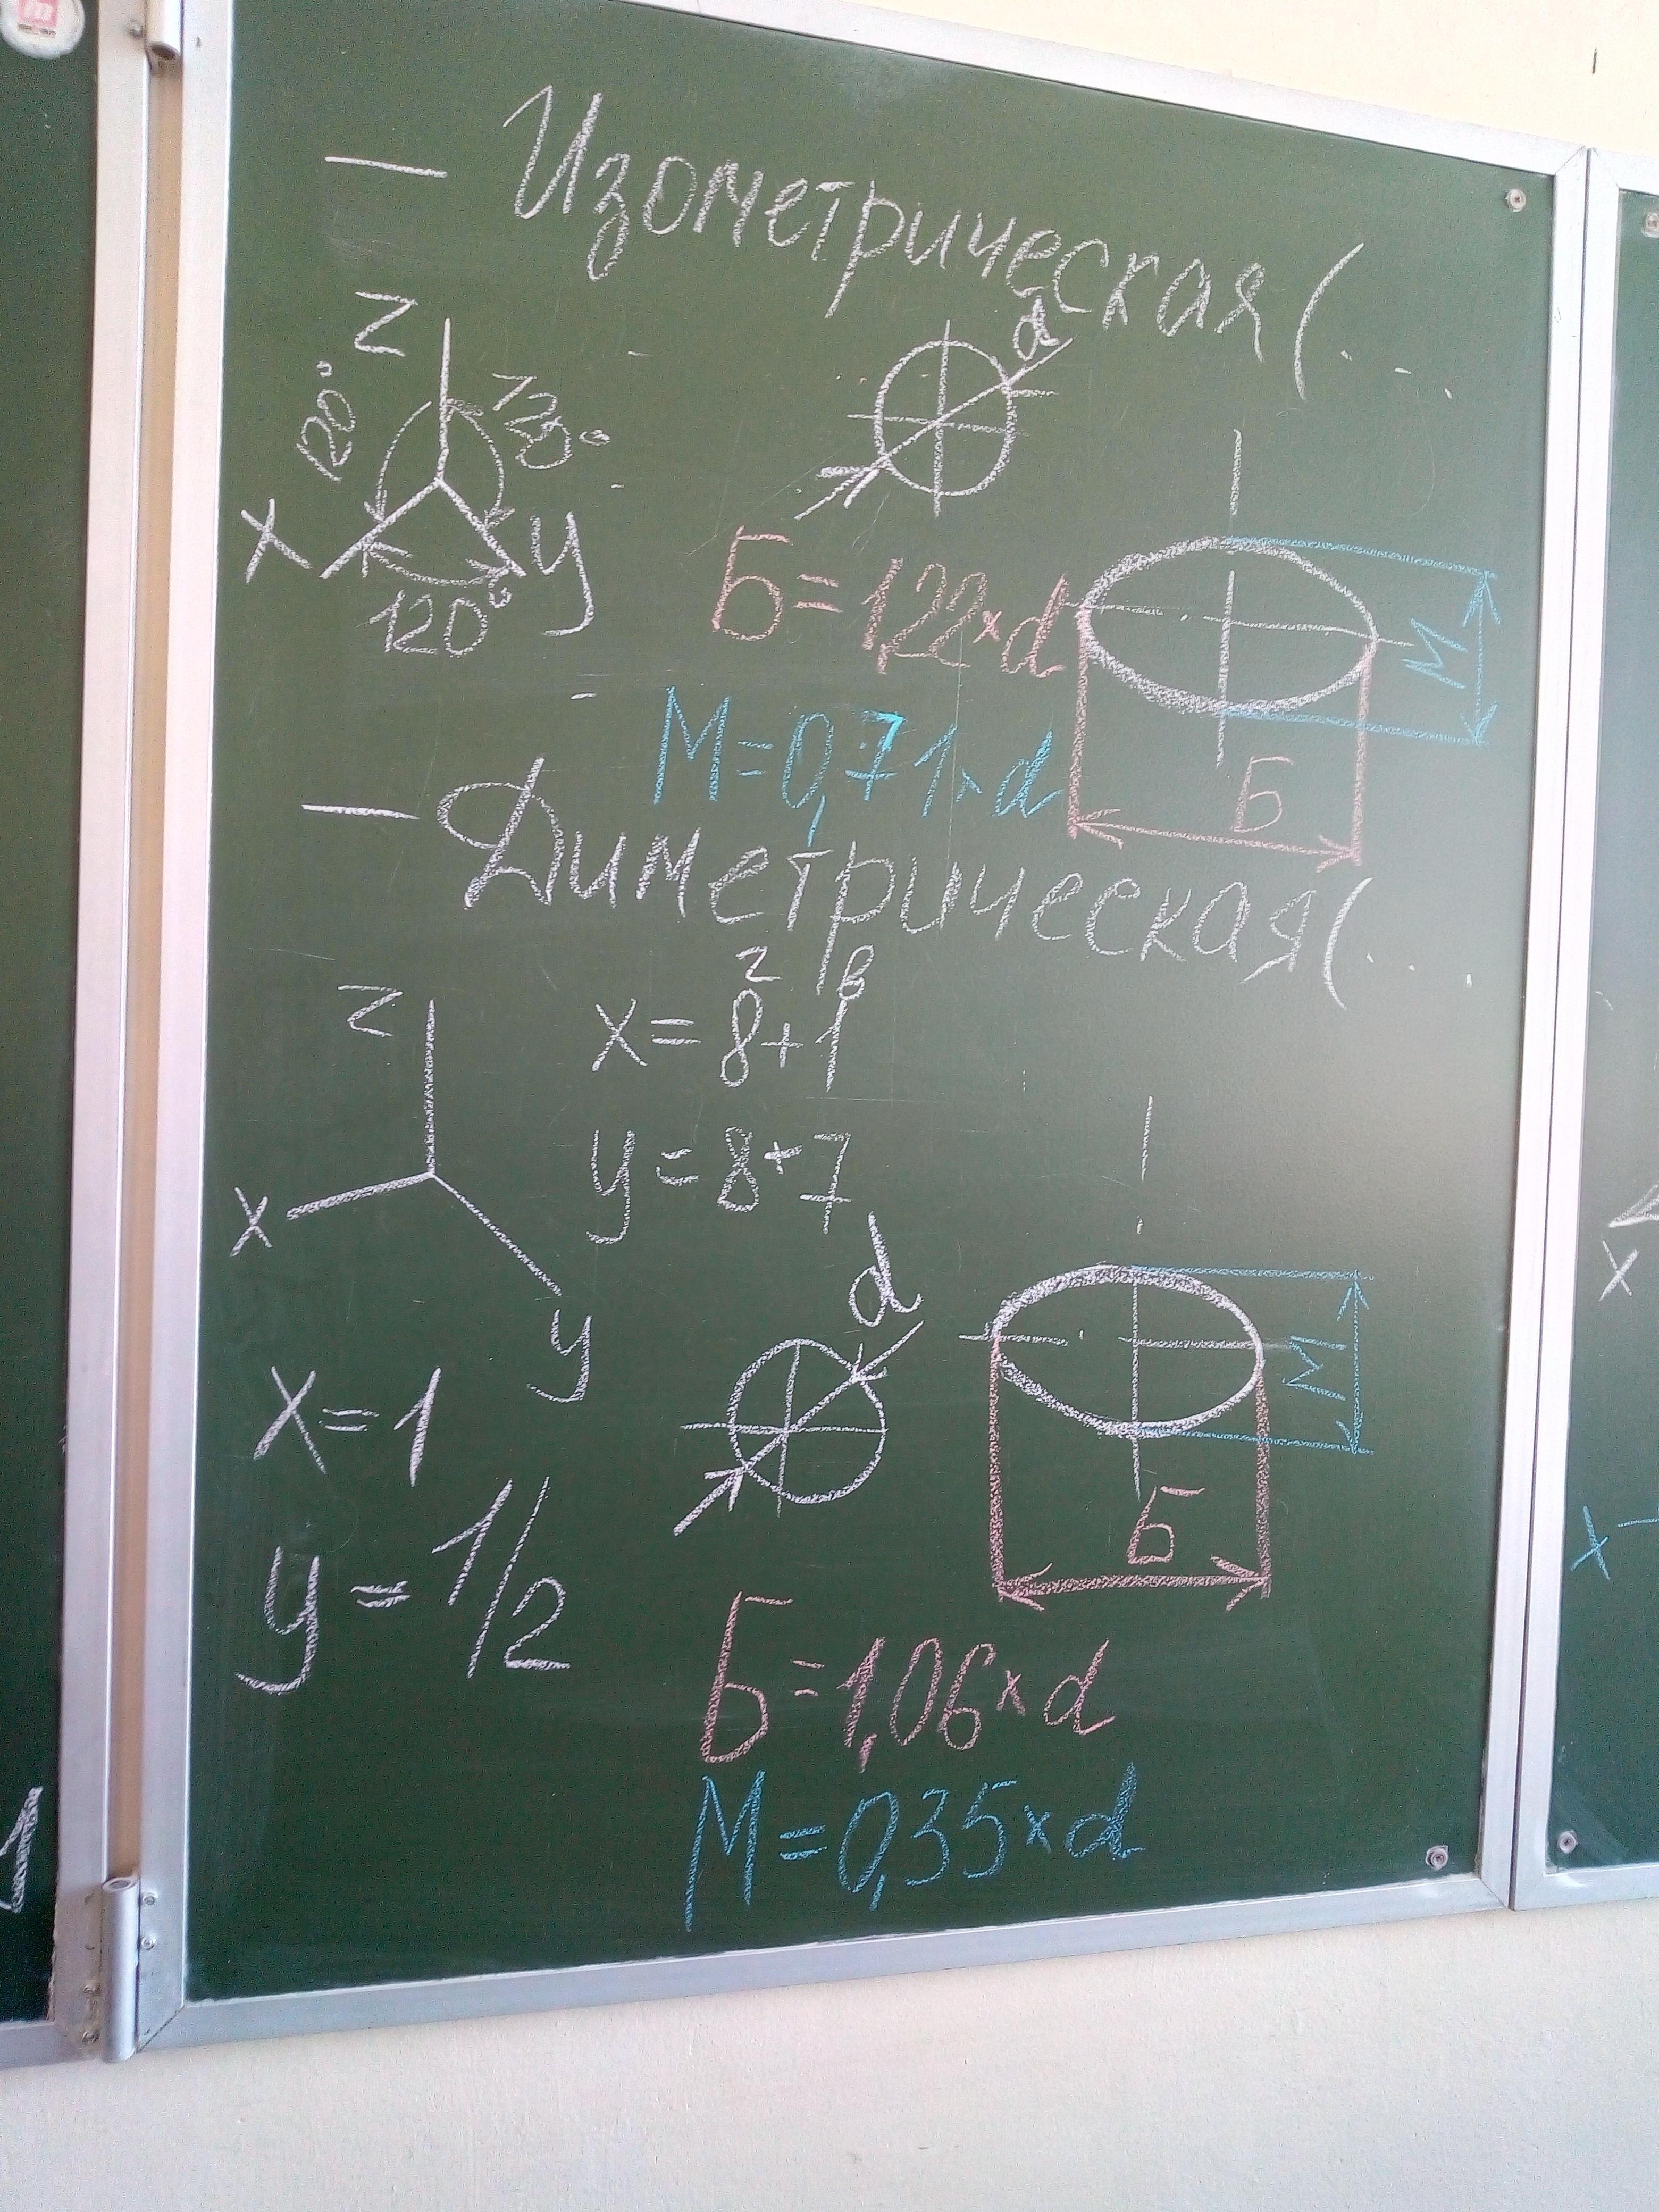 — Изометрическая (. . .
z
120°
120°
x
y
120°
d
Б = 1,22 × d
М = 0,71 × d
М
Б
— Диметрическая (. . . .
z
x
y
г в
x = 8 + 1
y = 8 + 7
x = 1
y = 1/2
d
М
Б
Б = 1,06 × d
М = 0,35 × d
x
x